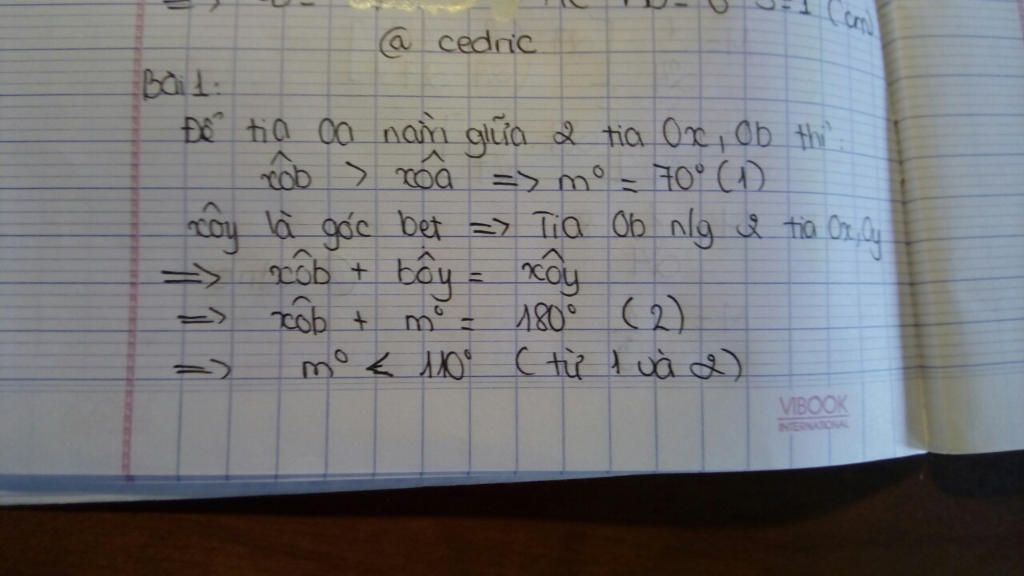 = 1 (cm)
@ cedric
Bài 1:
Để tia Oa nằm giữa 2 tia Ox, Ob thì:
xÔb > xÔa => m° = 70° (1)
xÔy là góc bẹt => Tia Ob n/g 2 tia Ox, Oy
=> xÔb + bÔy = xÔy
=> xÔb + m° = 180° (2)
=> m° < 110° (từ 1 và 2)
VIBOOK
INTERNATIONAL